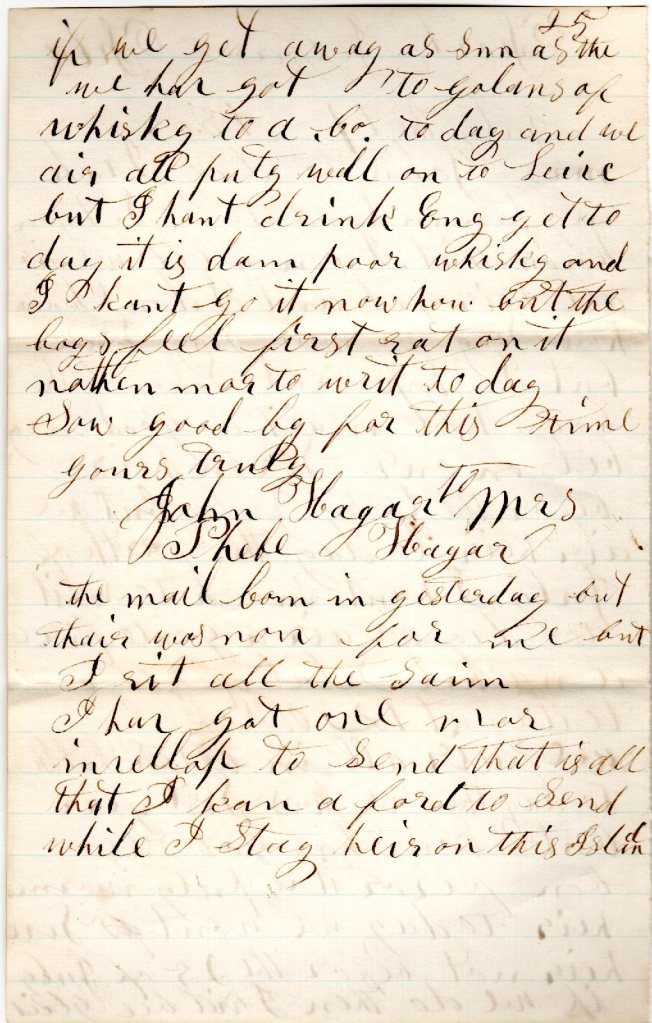 25
if we get away as sun as the
we hav got to golans of
whisky to a .bo. to day and we
air all puty wall on to Seire
but I hant drink Eny yet to
day it is dam poor whisky and
I kant go it now how but the
boys feel first rat on it
nothen mor to writ to day
Sow good by for this time
yours truly
John Hagar to Mrs
Phebe Hagar
the mail bom in yesterday but
thair was non for me but
I rit all the Saim
I hav got one mor
invellop to Send that is all
that I kan a ford to Send
while I Stay heir on this Islind